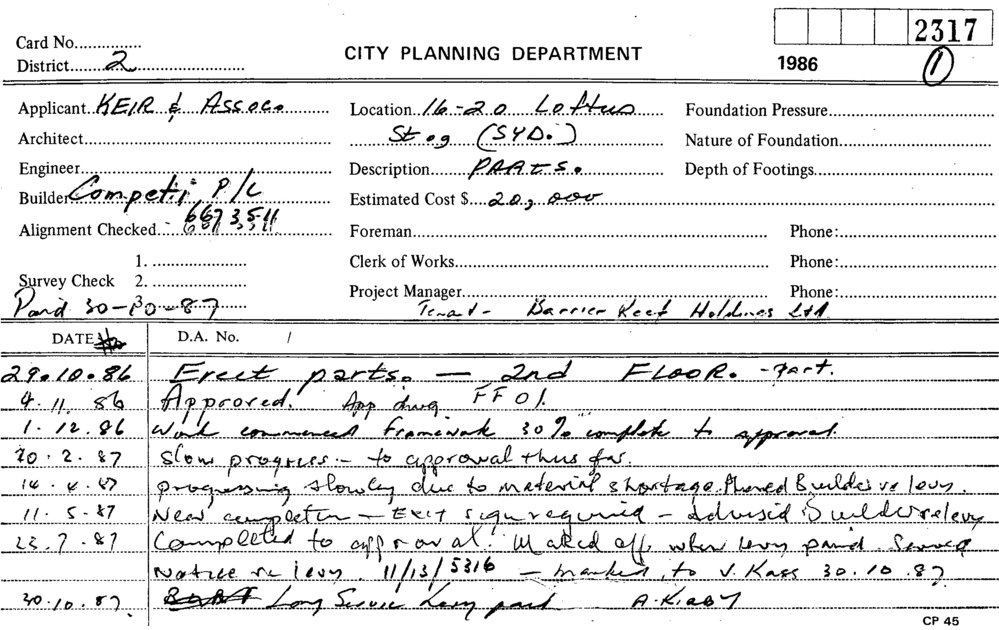 2317
Card No.
CITY PLANNING DEPARTMENT
District 2
1986
1
Applicant KEIR & Assocs
Location 16-20 Loftus
Foundation Pressure
Architect
St (SYD.)
Nature of Foundation
Engineer
Description PARTS.
Depth of Footings
Builder Competi P/L
Estimated Cost $ 20,000
667 3511
Alignment Checked
Foreman
Phone:
1.
Clerk of Works
Phone:
Survey Check 2.
3.
Project Manager
Phone:
Paid 30-10-87
Tenant - Barrier Reef Holdings Ltd
DATE
D.A. No. /
29.10.86 Erect parts. — 2nd FLOOR. - Part.
4.11.86 Approved. App dwg FF 01.
1.12.86 Work commenced framework 30% complete to approval.
20.2.87 Slow progress - to approval thus far.
14.4.87 progressing slowly due to material shortage. Phoned Builder re levy.
11.5.87 Near completion - EXIT sign required - Advised Builder re levy
23.7.87 Completed to approval. Marked off when levy paid. Served
Notice re levy. 11/13/5316 - marked to V. Kass 30.10.87
30.10.87 Long Service Levy paid A. Kirby
CP 45